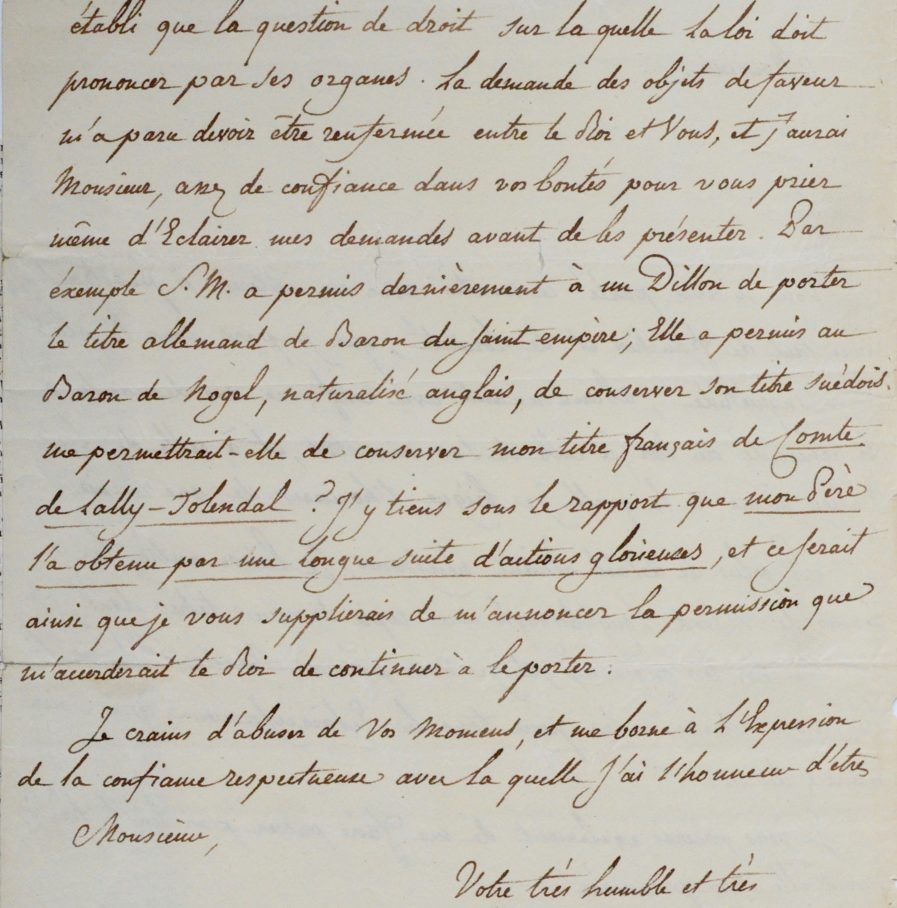 établi que la question de droit sur la quelle la loi doit
prononcer par ses organes. La demande des objets de faveur
m'a paru devoir être renfermée entre le Roi et Vous, et j'aurai
Monsieur, assez de confiance dans vos bontés pour vous prier
même d'Eclairer mes demandes avant de les présenter. Par
éxemple S. M. a permis dernièrement à un Dillon de porter
le titre allemand de Baron du Saint empire; Elle a permis au
Baron de Nogel, naturalisé anglais, de conserver son titre suédois.
me permettrait-elle de conserver mon titre français de Comte
de Lally-Tolendal ? J'y tiens sous le rapport que mon Père
l'a obtenu par une longue suite d'actions glorieuses, et ce serait
ainsi que je vous supplierais de m'annoncer la permission que
m'accorderait le Roi de continuer à le porter.
Je crains d'abuser de Vos Momens, et me borne à L'Expression
de la confiance respectueuse avec la quelle J'ai l'honneur d'être,
Monsieur,
Votre très humble et très